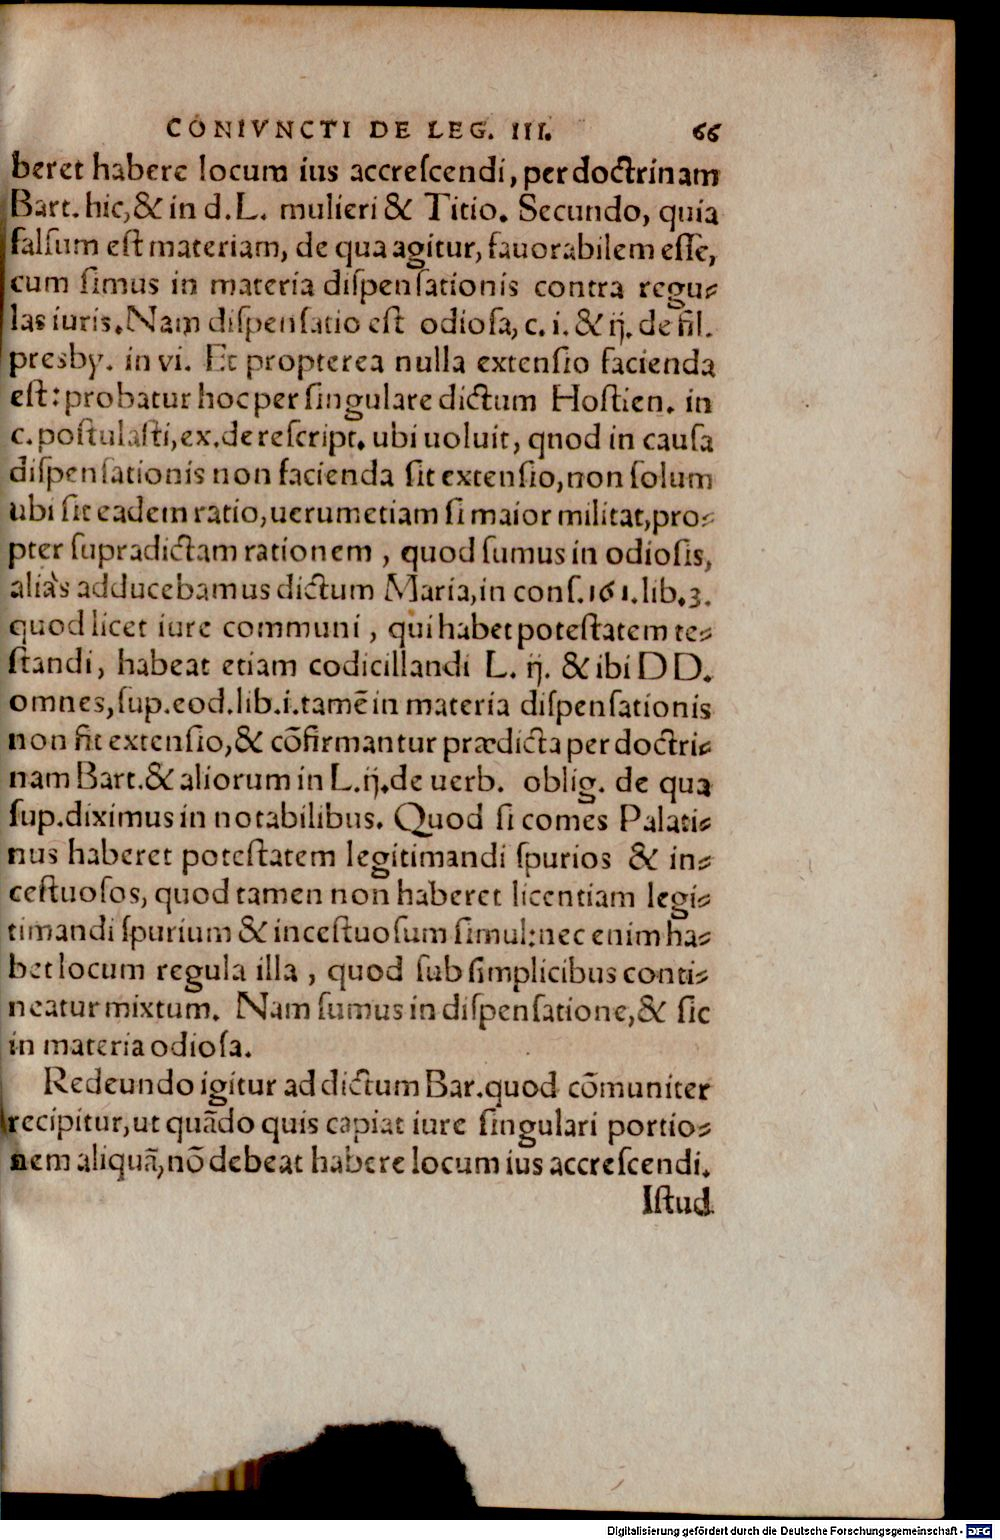 CONIVNCTI DE LEG. III. 66
beret habere locum ius accreſcendi, per doctrinam
Bart. hic, & in d. L. mulieri & Titio. Secundo, quia
falſum eſt materiam, de qua agitur, fauorabilem eſſe,
cum ſimus in materia diſpenſationis contra regu⸗
las iuris. Nam diſpenſatio eſt odioſa, c. i. & ij. de fil.
presby. in vi. Et propterea nulla extenſio facienda
eſt: probatur hoc per ſingulare dictum Hoſtien. in
c. poſtulaſti, ex. de reſcript. ubi uoluit, qnod in cauſa
diſpenſationis non facienda ſit extenſio, non ſolum
ubi ſit eadem ratio, uerumetiam ſi maior militat, pro⸗
pter ſupradictam rationem, quod ſumus in odioſis,
aliàs adducebamus dictum Maria, in conſ. 161. lib. 3.
quod licet iure communi, qui habet poteſtatem te⸗
ſtandi, habeat etiam codicillandi L. ij. & ibi DD.
omnes, ſup. eod. lib. i. tamē in materia diſpenſationis
non fit extenſio, & cōfirmantur prædicta per doctri⸗
nam Bart. & aliorum in L. ij. de uerb. oblig. de qua
ſup. diximus in notabilibus. Quod ſi comes Palati⸗
nus haberet poteſtatem legitimandi ſpurios & in⸗
ceſtuoſos, quod tamen non haberet licentiam legi⸗
timandi ſpurium & inceſtuoſum ſimul: nec enim ha⸗
bet locum regula illa, quod ſub ſimplicibus conti⸗
neatur mixtum. Nam ſumus in diſpenſatione, & ſic
in materia odioſa.
Redeundo igitur ad dictum Bar. quod cōmuniter
recipitur, ut quādo quis capiat iure ſingulari portio⸗
nem aliquā, nō debeat habere locum ius accreſcendi.
Iſtud
Digitalisierung gefördert durch die Deutsche Forschungsgemeinschaft - DFG